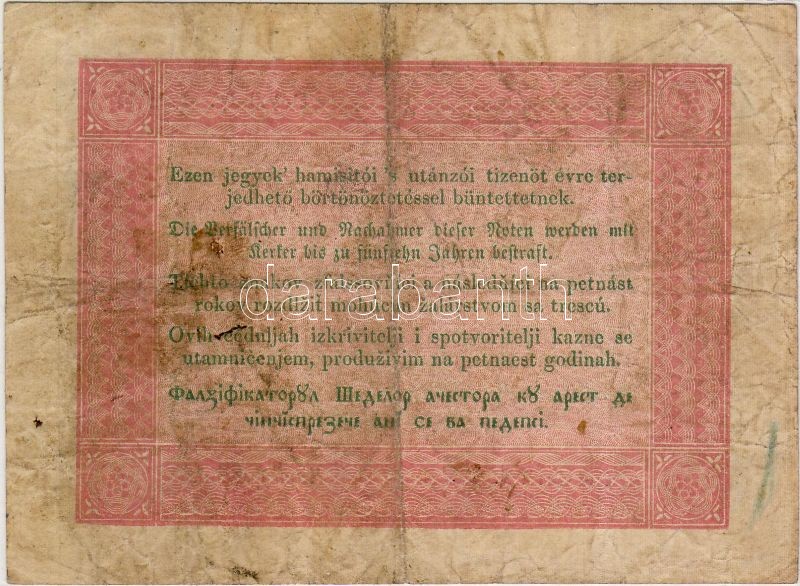 Ezen jegyek' hamisitói 's utánzói tizenöt évre ter-
jedhető börtönöztetéssel büntettetnek.
Die Verfälscher und Nachahmer dieser Noten werden mit
Kerker bis zu fünfzehn Jahren bestraft.
a následújci na petnást
rokov rozdlžit žalárstvom sa trescú.
darabanth
izkrivitelji i spotvoritelji kazne se
utamničenjem, produživim na petnaest godinah.
Фалзіфікаторул Шеделор ачестора кu арест де
чінчіспрезече ані се ва педепсі.